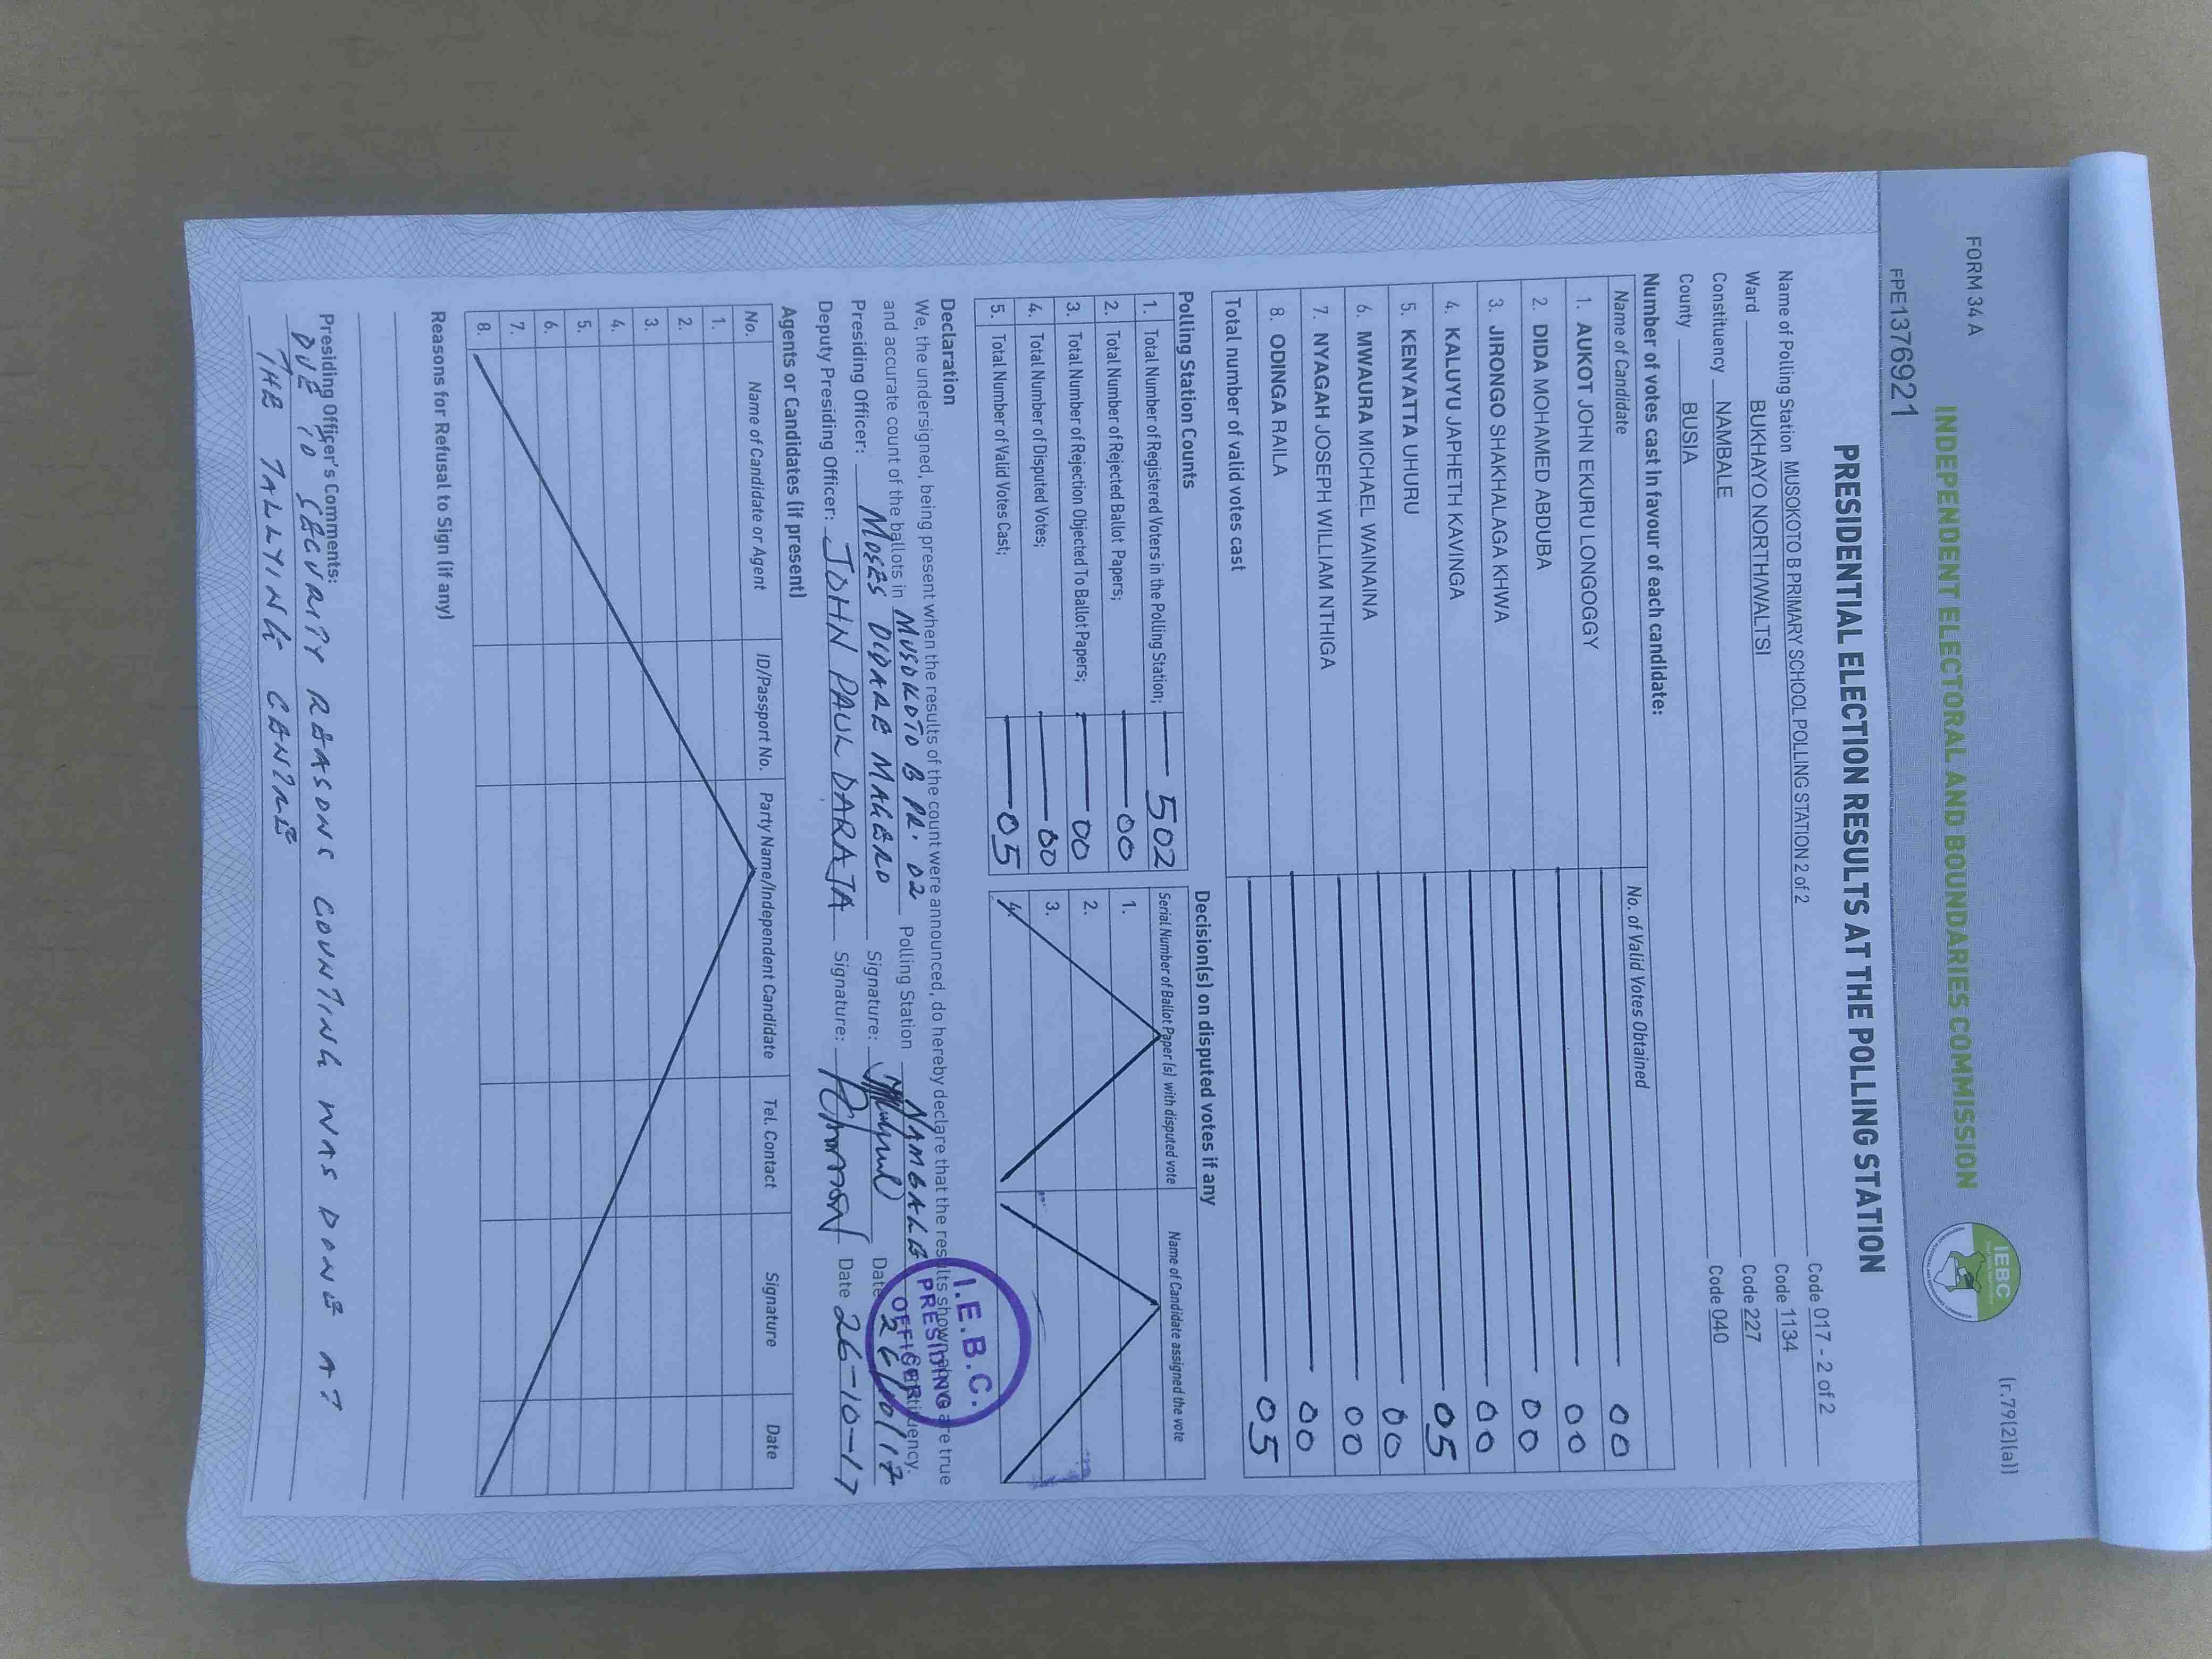 FORM 34 A
(r.79(2)(a))
INDEPENDENT ELECTORAL AND BOUNDARIES COMMISSION
IEBC
FPE1376921
PRESIDENTIAL ELECTION RESULTS AT THE POLLING STATION
Name of Polling Station MUSOKOTO B PRIMARY SCHOOL POLLING STATION 2 of 2 Code 017 - 2 of 2
Ward BUKHAYO NORTH/WALTSI Code 1134
Constituency NAMBALE Code 227
County BUSIA Code 040
Number of votes cast in favour of each candidate:
Name of Candidate No. of Valid Votes Obtained
1. AUKOT JOHN EKURU LONGOGGY 00
2. DIDA MOHAMED ABDUBA 00
3. JIRONGO SHAKHALAGA KHWA 00
4. KALUYU JAPHETH KAVINGA 00
5. KENYATTA UHURU 05
6. MWAURA MICHAEL WAINAINA 00
7. NYAGAH JOSEPH WILLIAM NTHIGA 00
8. ODINGA RAILA 00
Total number of valid votes cast 05
Polling Station Counts
1. Total Number of Registered Voters in the Polling Station; 502
2. Total Number of Rejected Ballot Papers; 00
3. Total Number of Rejection Objected To Ballot Papers; 00
4. Total Number of Disputed Votes; 00
5. Total Number of Valid Votes Cast; 05
Decision(s) on disputed votes if any
Serial Number of Ballot Paper (s) with disputed vote Name of Candidate assigned the vote
1.
2.
3.
4.
Declaration
We, the undersigned, being present when the results of the count were announced, do hereby declare that the results shown above are true
and accurate count of the ballots in MUSOKOTO B PR. 02 Polling Station NAMBALE Constituency.
Presiding Officer: MOSES ODARE MAGERO Signature: Date 26/10/17
Deputy Presiding Officer: JOHN PAUL DARAJA Signature: Date 26-10-17
I.E.B.C.
PRESIDING
OFFICER
Agents or Candidates (if present)
No. Name of Candidate or Agent ID/Passport No. Party Name/Independent Candidate Tel. Contact Signature Date
1.
2.
3.
4.
5.
6.
7.
8.
Reasons for Refusal to Sign (if any)
Presiding Officer's Comments:
DUE TO SECURITY REASONS COUNTING WAS DONE AT
THE TALLYING CENTRE